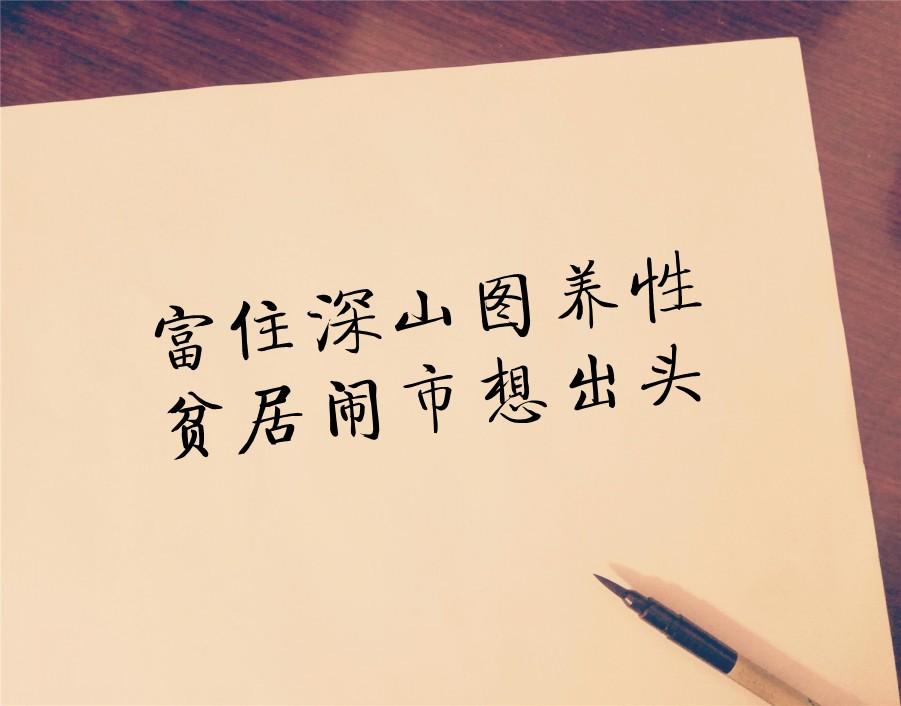 富住深山图养性
贫居闹市想出头